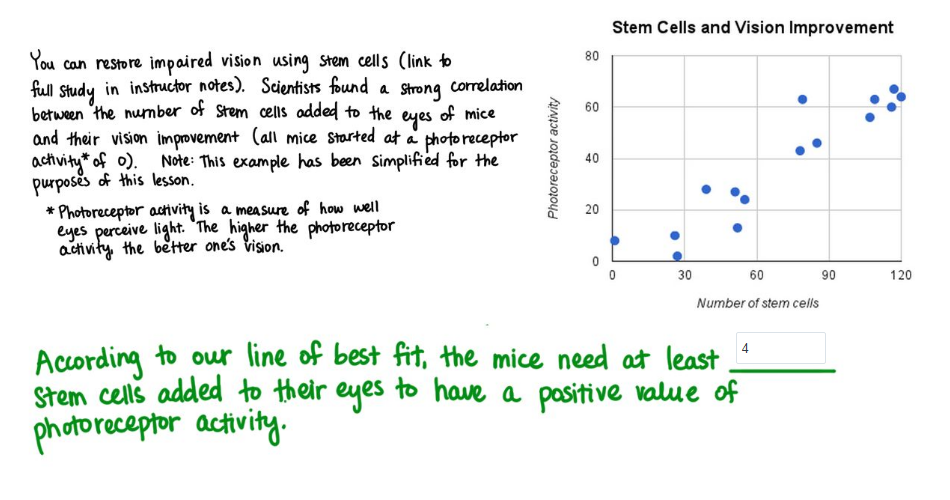 Stem Cells and Vision Improvement
You can restore impaired vision using stem cells (link to
full study in instructor notes). Scientists found a strong correlation
between the number of stem cells added to the eyes of mice
and their vision improvement (all mice started at a photoreceptor
activity* of 0). Note: This example has been simplified for the
purposes of this lesson.
* Photoreceptor activity is a measure of how well
eyes perceive light. The higher the photoreceptor
activity, the better one's vision.
80
60
40
20
0
Photoreceptor activity
0 30 60 90 120
Number of stem cells
According to our line of best fit, the mice need at least 4
stem cells added to their eyes to have a positive value of
photoreceptor activity.